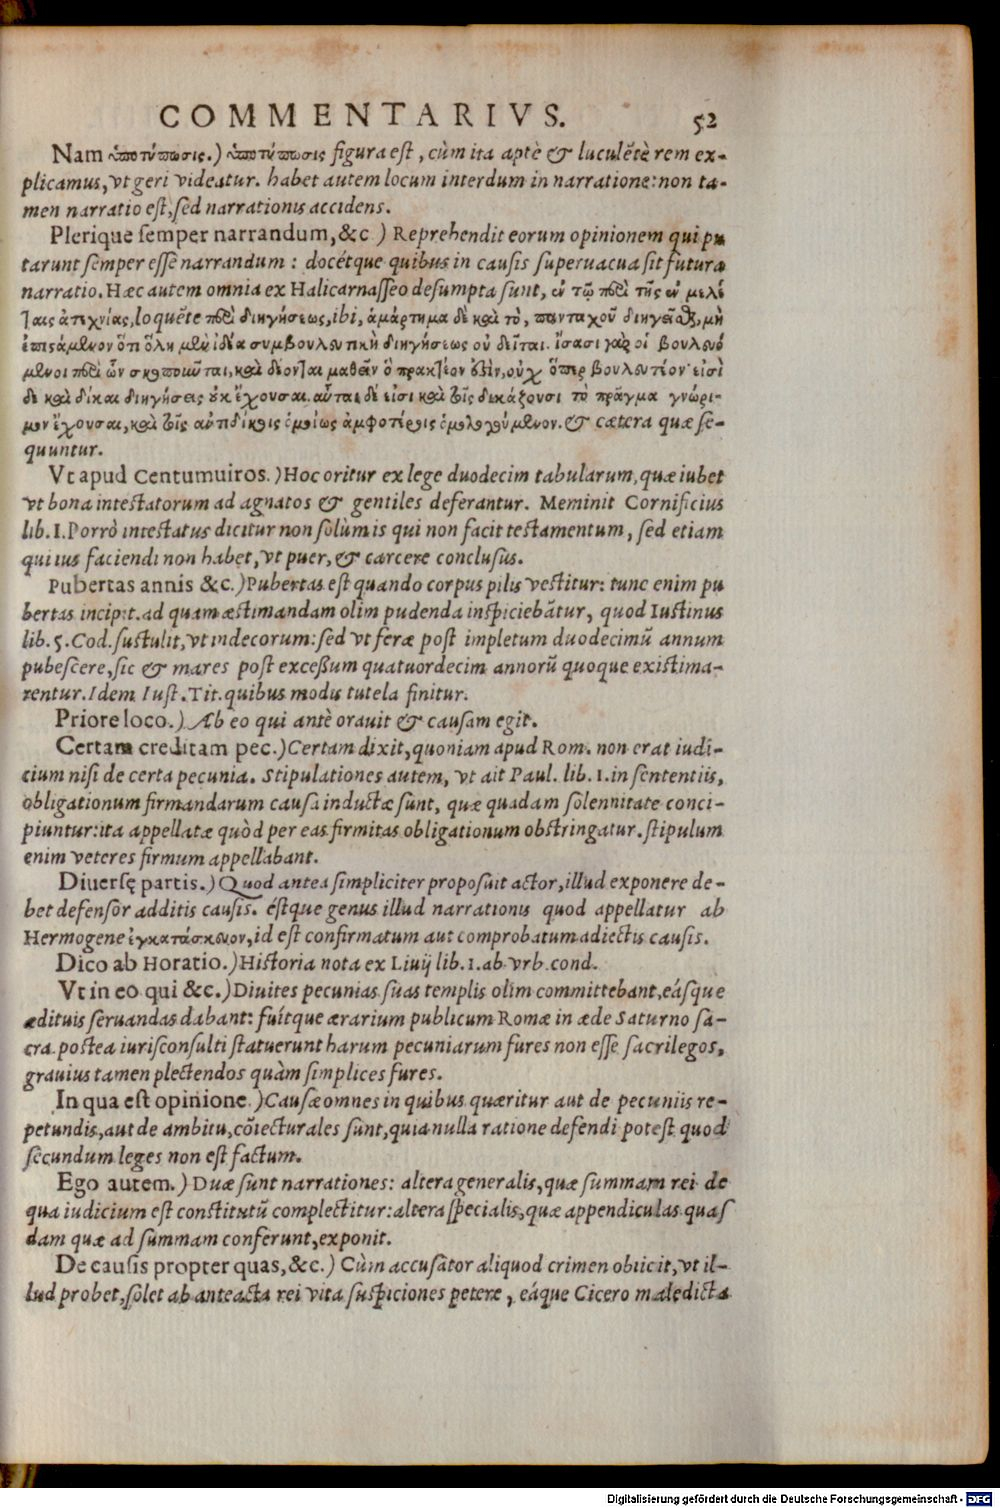 COMMENTARIVS. 52
Nam ὑποτύπωσις.) ὑποτύπωσις figura est, cùm ita aptè & luculẽtè rem ex-
plicamus, vt geri videatur. habet autem locum interdum in narratione: non ta-
men narratio est, sed narrationis accidens.
Plerique semper narrandum, &c ) Reprehendit eorum opinionem qui pu
tarunt semper esse narrandum : docétque quibus in causis superuacua sit futura
narratio. Hæc autem omnia ex Halicarnasseo desumpta sunt, ἐν τῷ περὶ τῆς ἐν μελέ
ταις ἀτεχνίας, loquẽte περὶ διηγήσεως, ibi, ἁμάρτημα δὲ καὶ τὸ, πανταχοῦ διηγεῖσθαι, μὴ
ἐπιστάμενον ὅτι ὅλη μὲν ἰδέα συμβουλευτικὴ διηγήσεως οὐ δεῖται. ἴσασι γὰρ οἱ βουλευό
μενοι περὶ ὧν σκοποῦνται, καὶ δέονται μαθεῖν ὃ πρακτέον ἐστὶν, οὐχ ὅπερ βουλευτέον· εἰσὶ
δὲ καὶ δίκαι διηγήσεις οὐκ ἔχουσαι. αὗται δέ εἰσι καὶ τοῖς δικάζουσι τὸ πρᾶγμα γνώρι-
μον ἔχουσαι, καὶ τοῖς ἀντιδίκοις ὁμοίως ἀμφοτέροις ὁμολογούμενον. & cætera quæ se-
quuntur.
Vt apud Centumuiros. ) Hoc oritur ex lege duodecim tabularum, quæ iubet
vt bona intestatorum ad agnatos & gentiles deferantur. Meminit Cornificius
lib. 1. Porrò intestatus dicitur non solùm is qui non facit testamentum, sed etiam
qui ius faciendi non habet, vt puer, & carcere conclusus.
Pubertas annis &c.) Pubertas est quando corpus pilis vestitur: tunc enim pu
bertas incipit. ad quam æstimandam olim pudenda inspiciebãtur, quod Iustinus
lib. 5. Cod. sustulit, vt indecorum: sed vt feræ post impletum duodecimũ annum
pubescere, sic & mares post excessum quatuordecim annorũ quoque existima-
rentur. Idem Iust. Tit. quibus modis tutela finitur.
Priore loco.) Ab eo qui antè orauit & causam egit.
Certam creditam pec.) Certam dixit, quoniam apud Rom. non erat iudi-
cium nisi de certa pecunia. Stipulationes autem, vt ait Paul. lib. 1. in sententiis,
obligationum firmandarum causa inductæ sunt, quæ quadam solennitate conci-
piuntur: ita appellatæ quòd per eas firmitas obligationum obstringatur. stipulum
enim veteres firmum appellabant.
Diuersę partis.) Quod antea simpliciter proposuit actor, illud exponere de-
bet defensor additis causis. éstque genus illud narrationis quod appellatur ab
Hermogene ἐγκατάσκευον, id est confirmatum aut comprobatum adiectis causis.
Dico ab Horatio.) Historia nota ex Liuij lib. 1. ab vrb. cond.
Vt in eo qui &c.) Diuites pecunias suas templis olim committebant, eásque
ædituis seruandas dabant: fuítque ærarium publicum Romæ in æde Saturno sa-
cra. postea iurisconsulti statuerunt harum pecuniarum fures non esse sacrilegos,
grauius tamen plectendos quàm simplices fures.
In qua est opinione.) Causæ omnes in quibus quæritur aut de pecuniis re-
petundis, aut de ambitu, cõiecturales sunt, quia nulla ratione defendi potest quod
secundum leges non est factum.
Ego autem.) Duæ sunt narrationes: altera generalis, quæ summam rei de
qua iudicium est constitutũ complectitur: altera specialis, quæ appendiculas quas
dam quæ ad summam conferunt, exponit.
De causis propter quas, &c.) Cùm accusator aliquod crimen obiicit, vt il-
lud probet, solet ab anteacta rei vita suspiciones petere, eáque Cicero maledicta
Digitalisierung gefördert durch die Deutsche Forschungsgemeinschaft - DFG